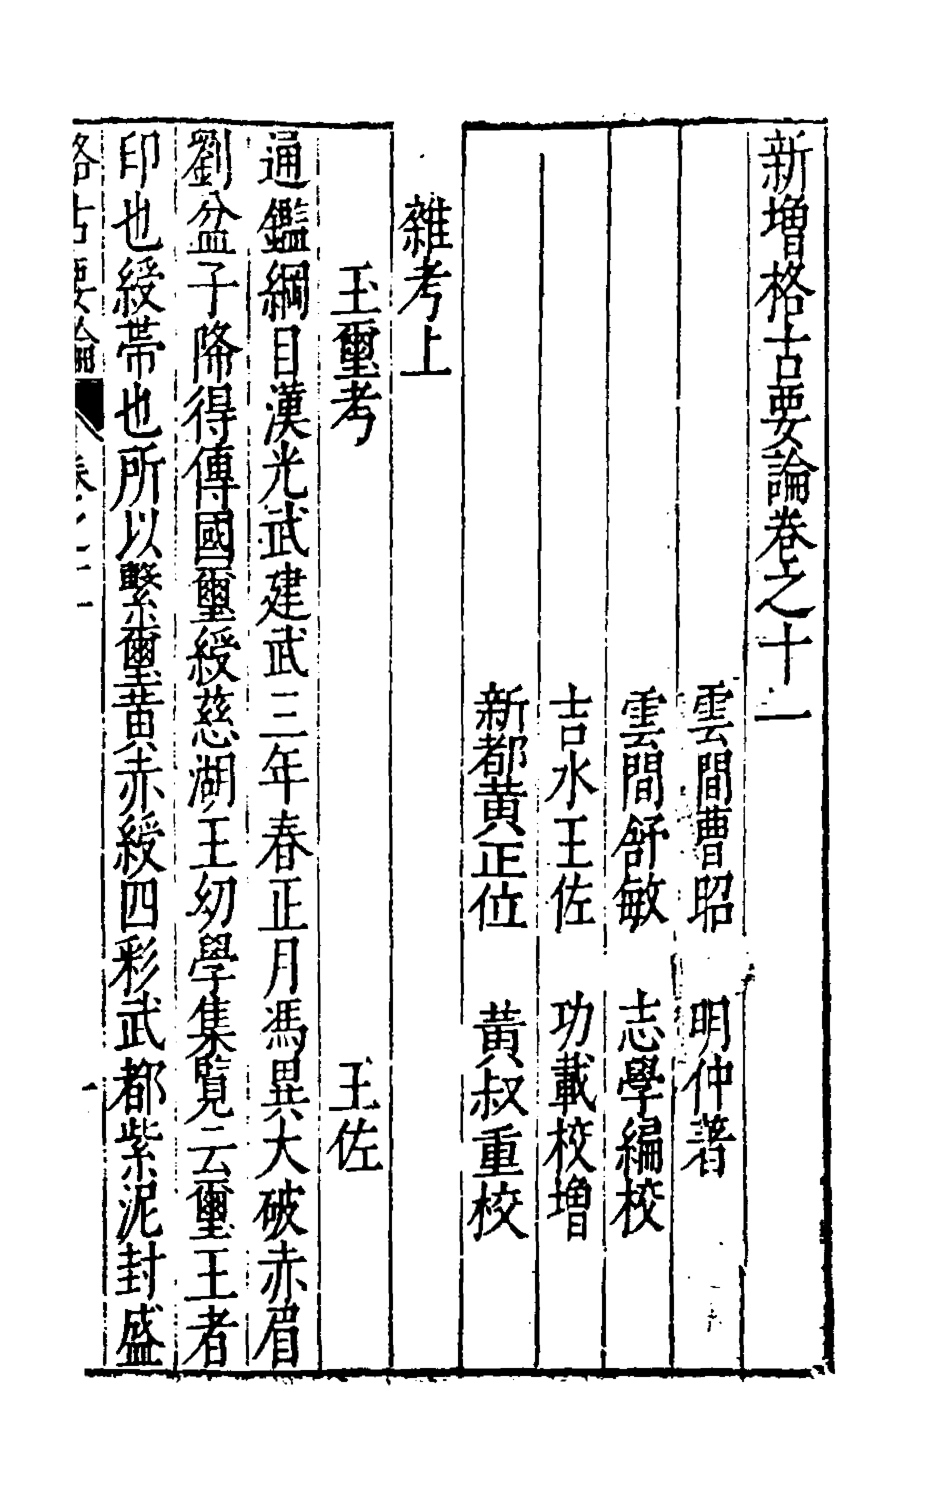 新增格古要論卷之十一
雲間曹昭 明仲著
雲間舒敏 志學編校
吉水王佐 功載校增
新都黃正位 黃叔重校
雜考上
玉璽考 王佐
通鑑綱目漢光武建武三年春正月馮異大破赤眉
劉盆子降得傳國璽綬慈湖王幼學集覽云璽王者
印也綬帯也所以繫璽黃赤綬四彩武都紫泥封盛
格古要論 卷之十一 一